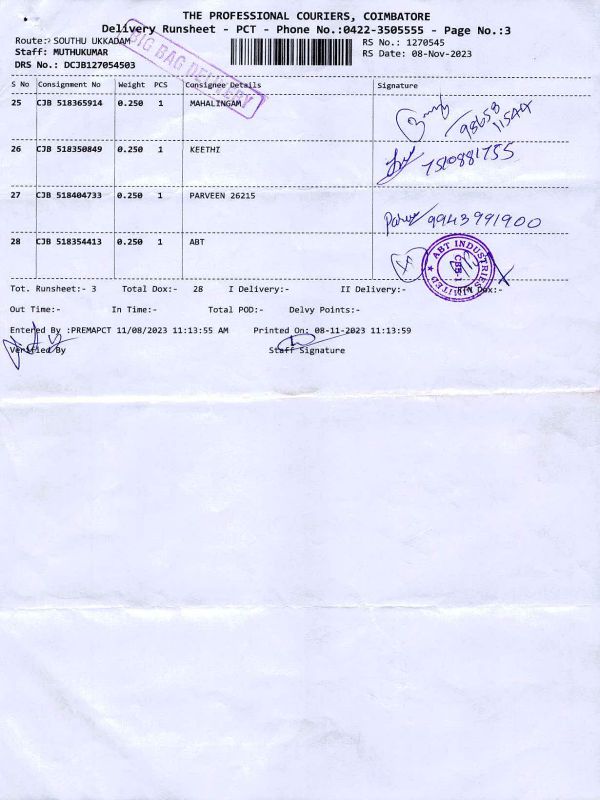 THE PROFESSIONAL COURIERS, COIMBATORE
Delivery Runsheet - PCT - Phone No.:0422-3505555 - Page No.:3
Route:- SOUTHU UKKADAM
RS No.: 1270545
Staff: MUTHUKUMAR
RS Date: 08-Nov-2023
DRS No.: DCJB127054503
BIG BAG DELIVERY
S No Consignment No Weight PCS Consignee Details Signature
25 CJB 518365914 0.250 1 MAHALINGAM
98658
11544
26 CJB 518350849 0.250 1 KEETHZ
7510881755
27 CJB 518404733 0.250 1 PARVEEN 26215
9943991900
28 CJB 518354413 0.250 1 ABT
ABT INDUSTRIES LIMITED
CBE
Tot. Runsheet:- 3 Total Dox:- 28 I Delivery:- II Delivery:- Dox:-
Out Time:- In Time:- Total POD:- Delvy Points:-
Entered By :PREMAPCT 11/08/2023 11:13:55 AM Printed On: 08-11-2023 11:13:59
Verified By Staff Signature